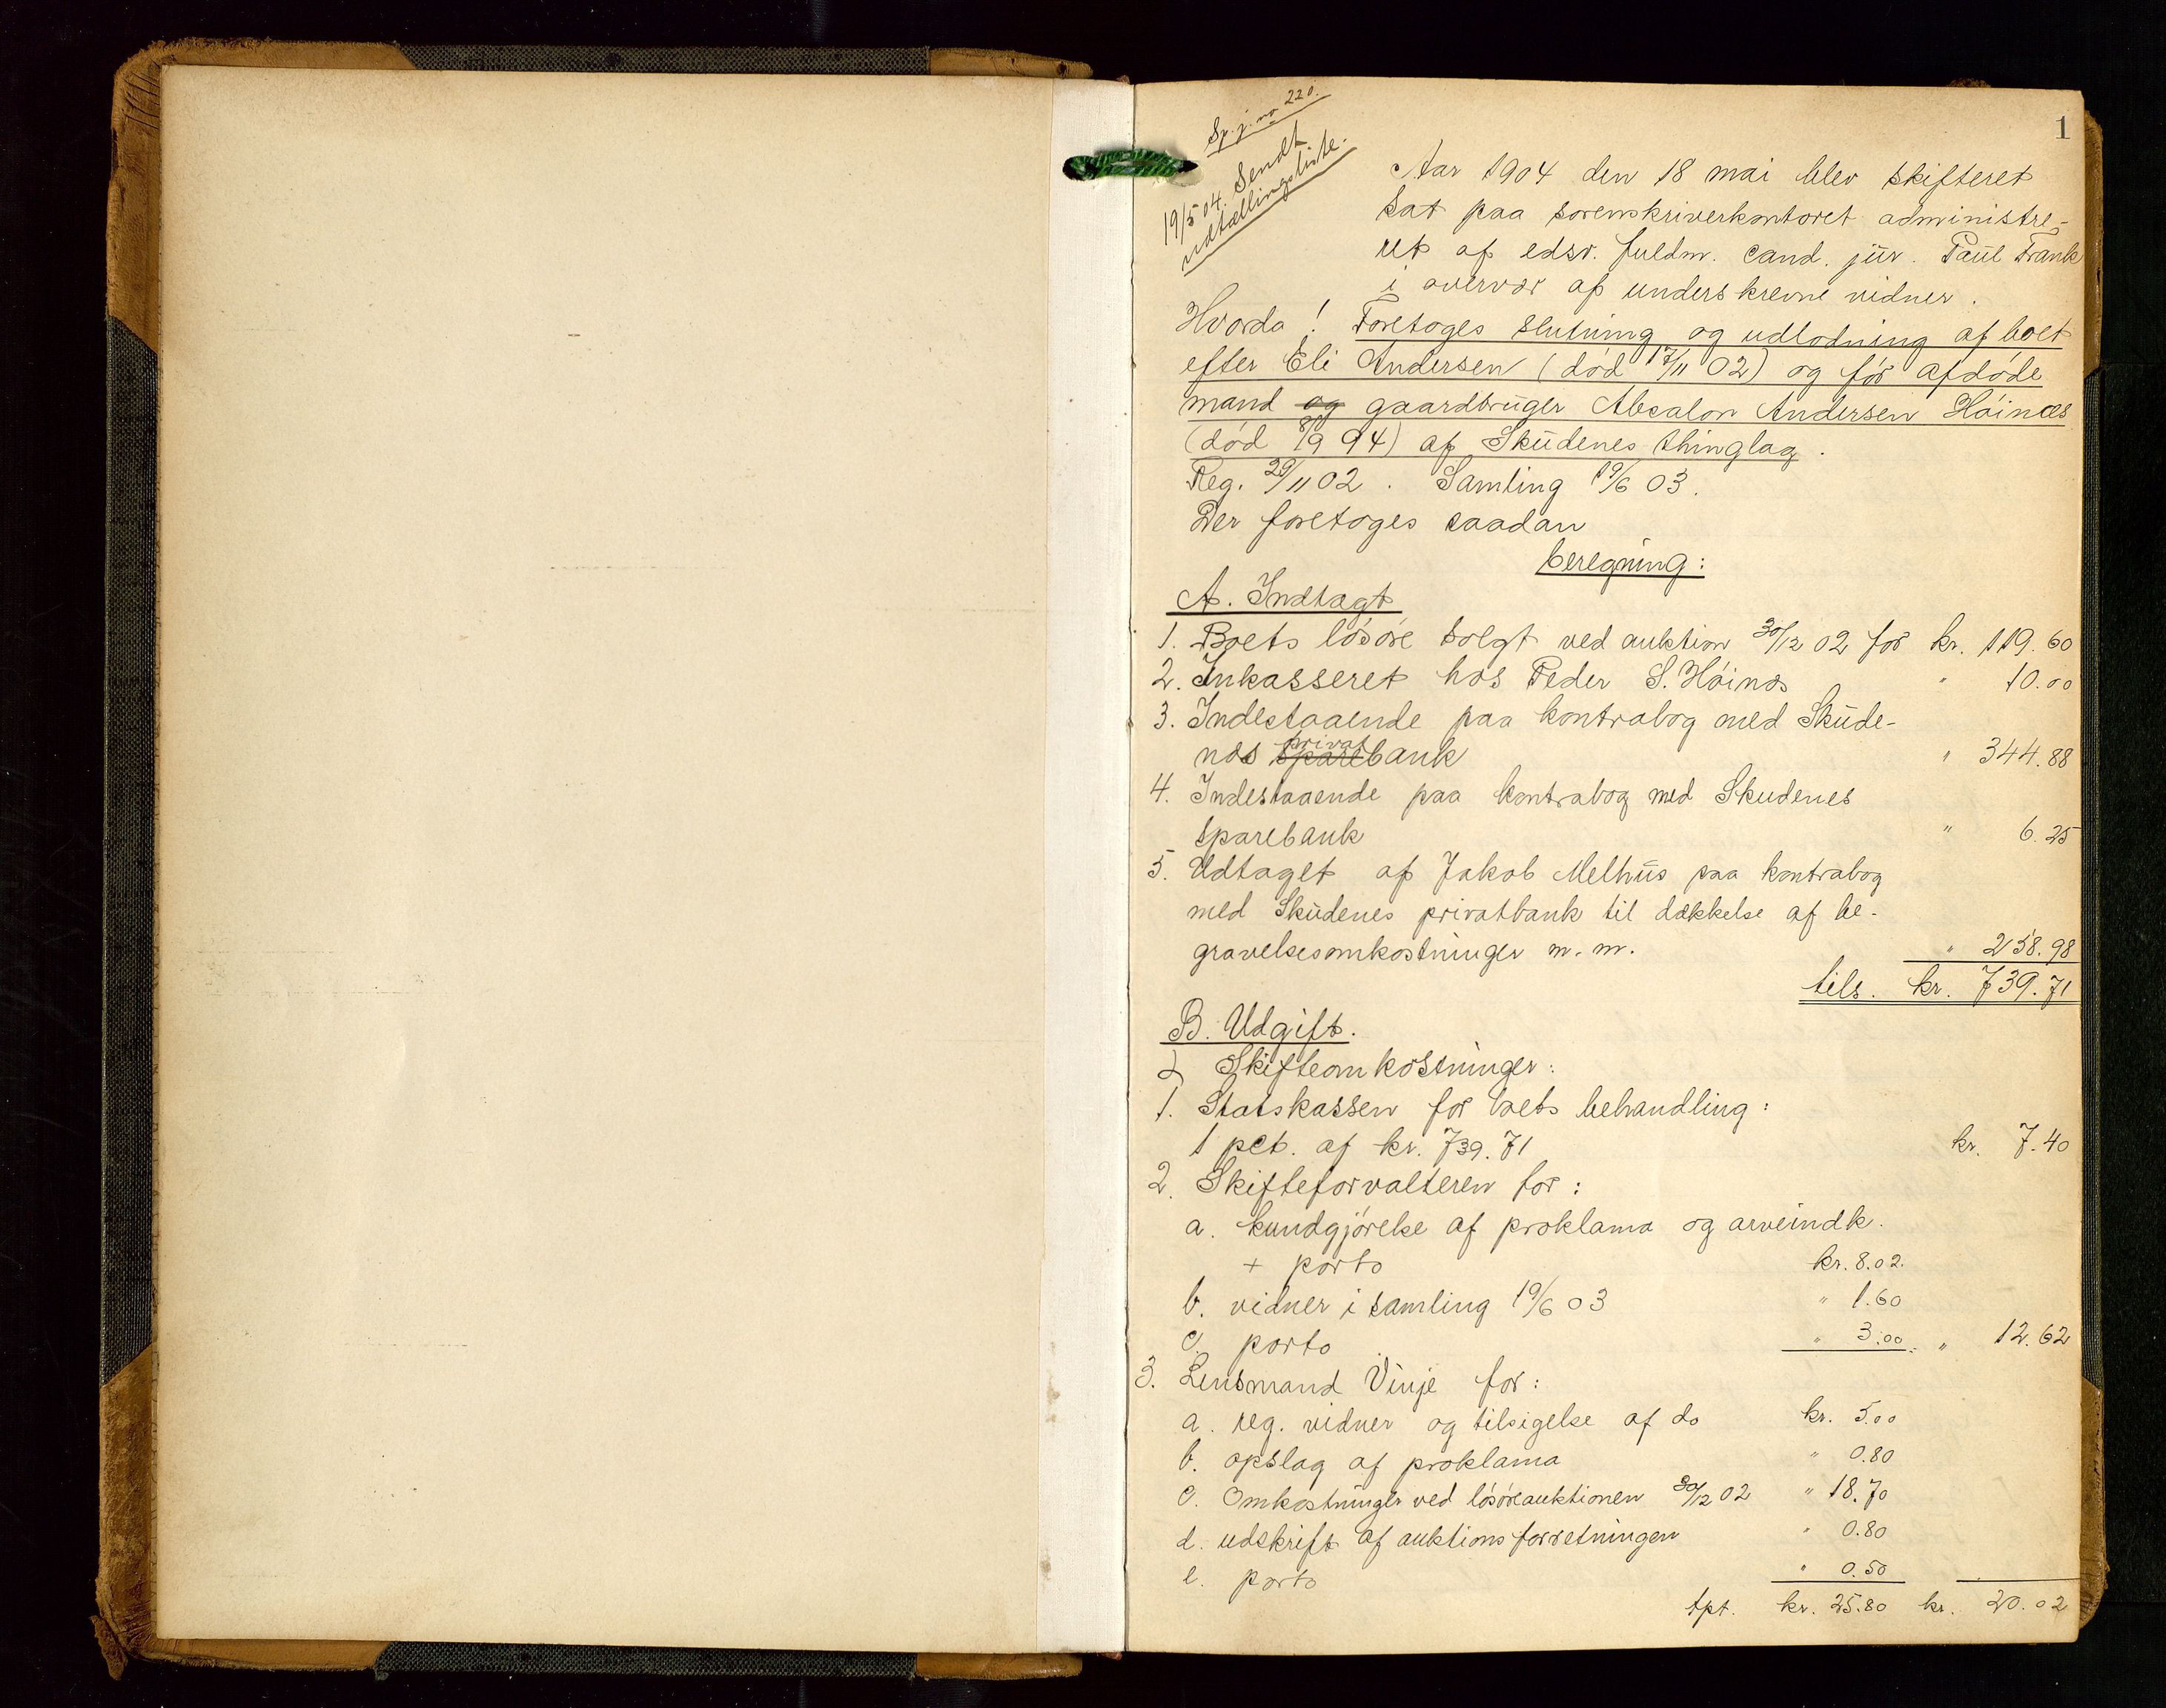 1
Sp. j. no 220.
19/5 04. Sendt
udtællingsliste.
Aar 1904 den 18 mai blev skifteret
sat paa sorenskriverkontoret administre-
ret af edsv. fuldm. cand. jur. Paul Frank
i overvær af underskrevne vidner.
Hvorda! Foretoges slutning og udlodning af boet
efter Eli Andersen (død 17/11 02) og før afdøde
mand og gaardbruger Absalon Andersen Høinæs
(død 8/9 94) af Skudenes thinglag.
Reg. 29/11 02. Samling 19/6 03.
Der foretoges saadan
beregning:
A. Indtægt
1. Boets løsøre solgt ved auktion 30/12 02 for kr. 119.60
2. Inkasseret hos Peder S. Høinæs " 10.00
3. Indestaaende paa kontrabog med Skude-
privat
næs sparebank " 344.88
4. Indestaaende paa kontrabog med Skudenes
sparebank " 6.25
5. Udtaget af Jakob Melhus paa kontrabog
med Skudenes privatbank til dækkelse af be-
gravelsesomkostninger m. m. " 258.98
tils. kr. 739.71
B. Udgift.
α Skifteomkostninger:
1. Statskassen for boets behandling:
1 pct. af kr. 739.71 kr. 7.40
2. Skifteforvalteren for:
a. kundgjørelse af proklama og arveindk.
+ porto kr. 8.02.
b. vidner i samling 19/6 03 " 1.60
c. porto " 3.00. " 12.62
3. Lensmand Vinje for:
a. reg. vidner og tilsigelse af do kr. 5.00
b. opslag af proklama " 0.80
c. Omkostninger ved løsøreauktionen 30/12 02 " 18.70
d. udskrift af auktionsforretningen " 0.80
e. porto " 0.50
tpt. kr. 25.80 kr. 20.02